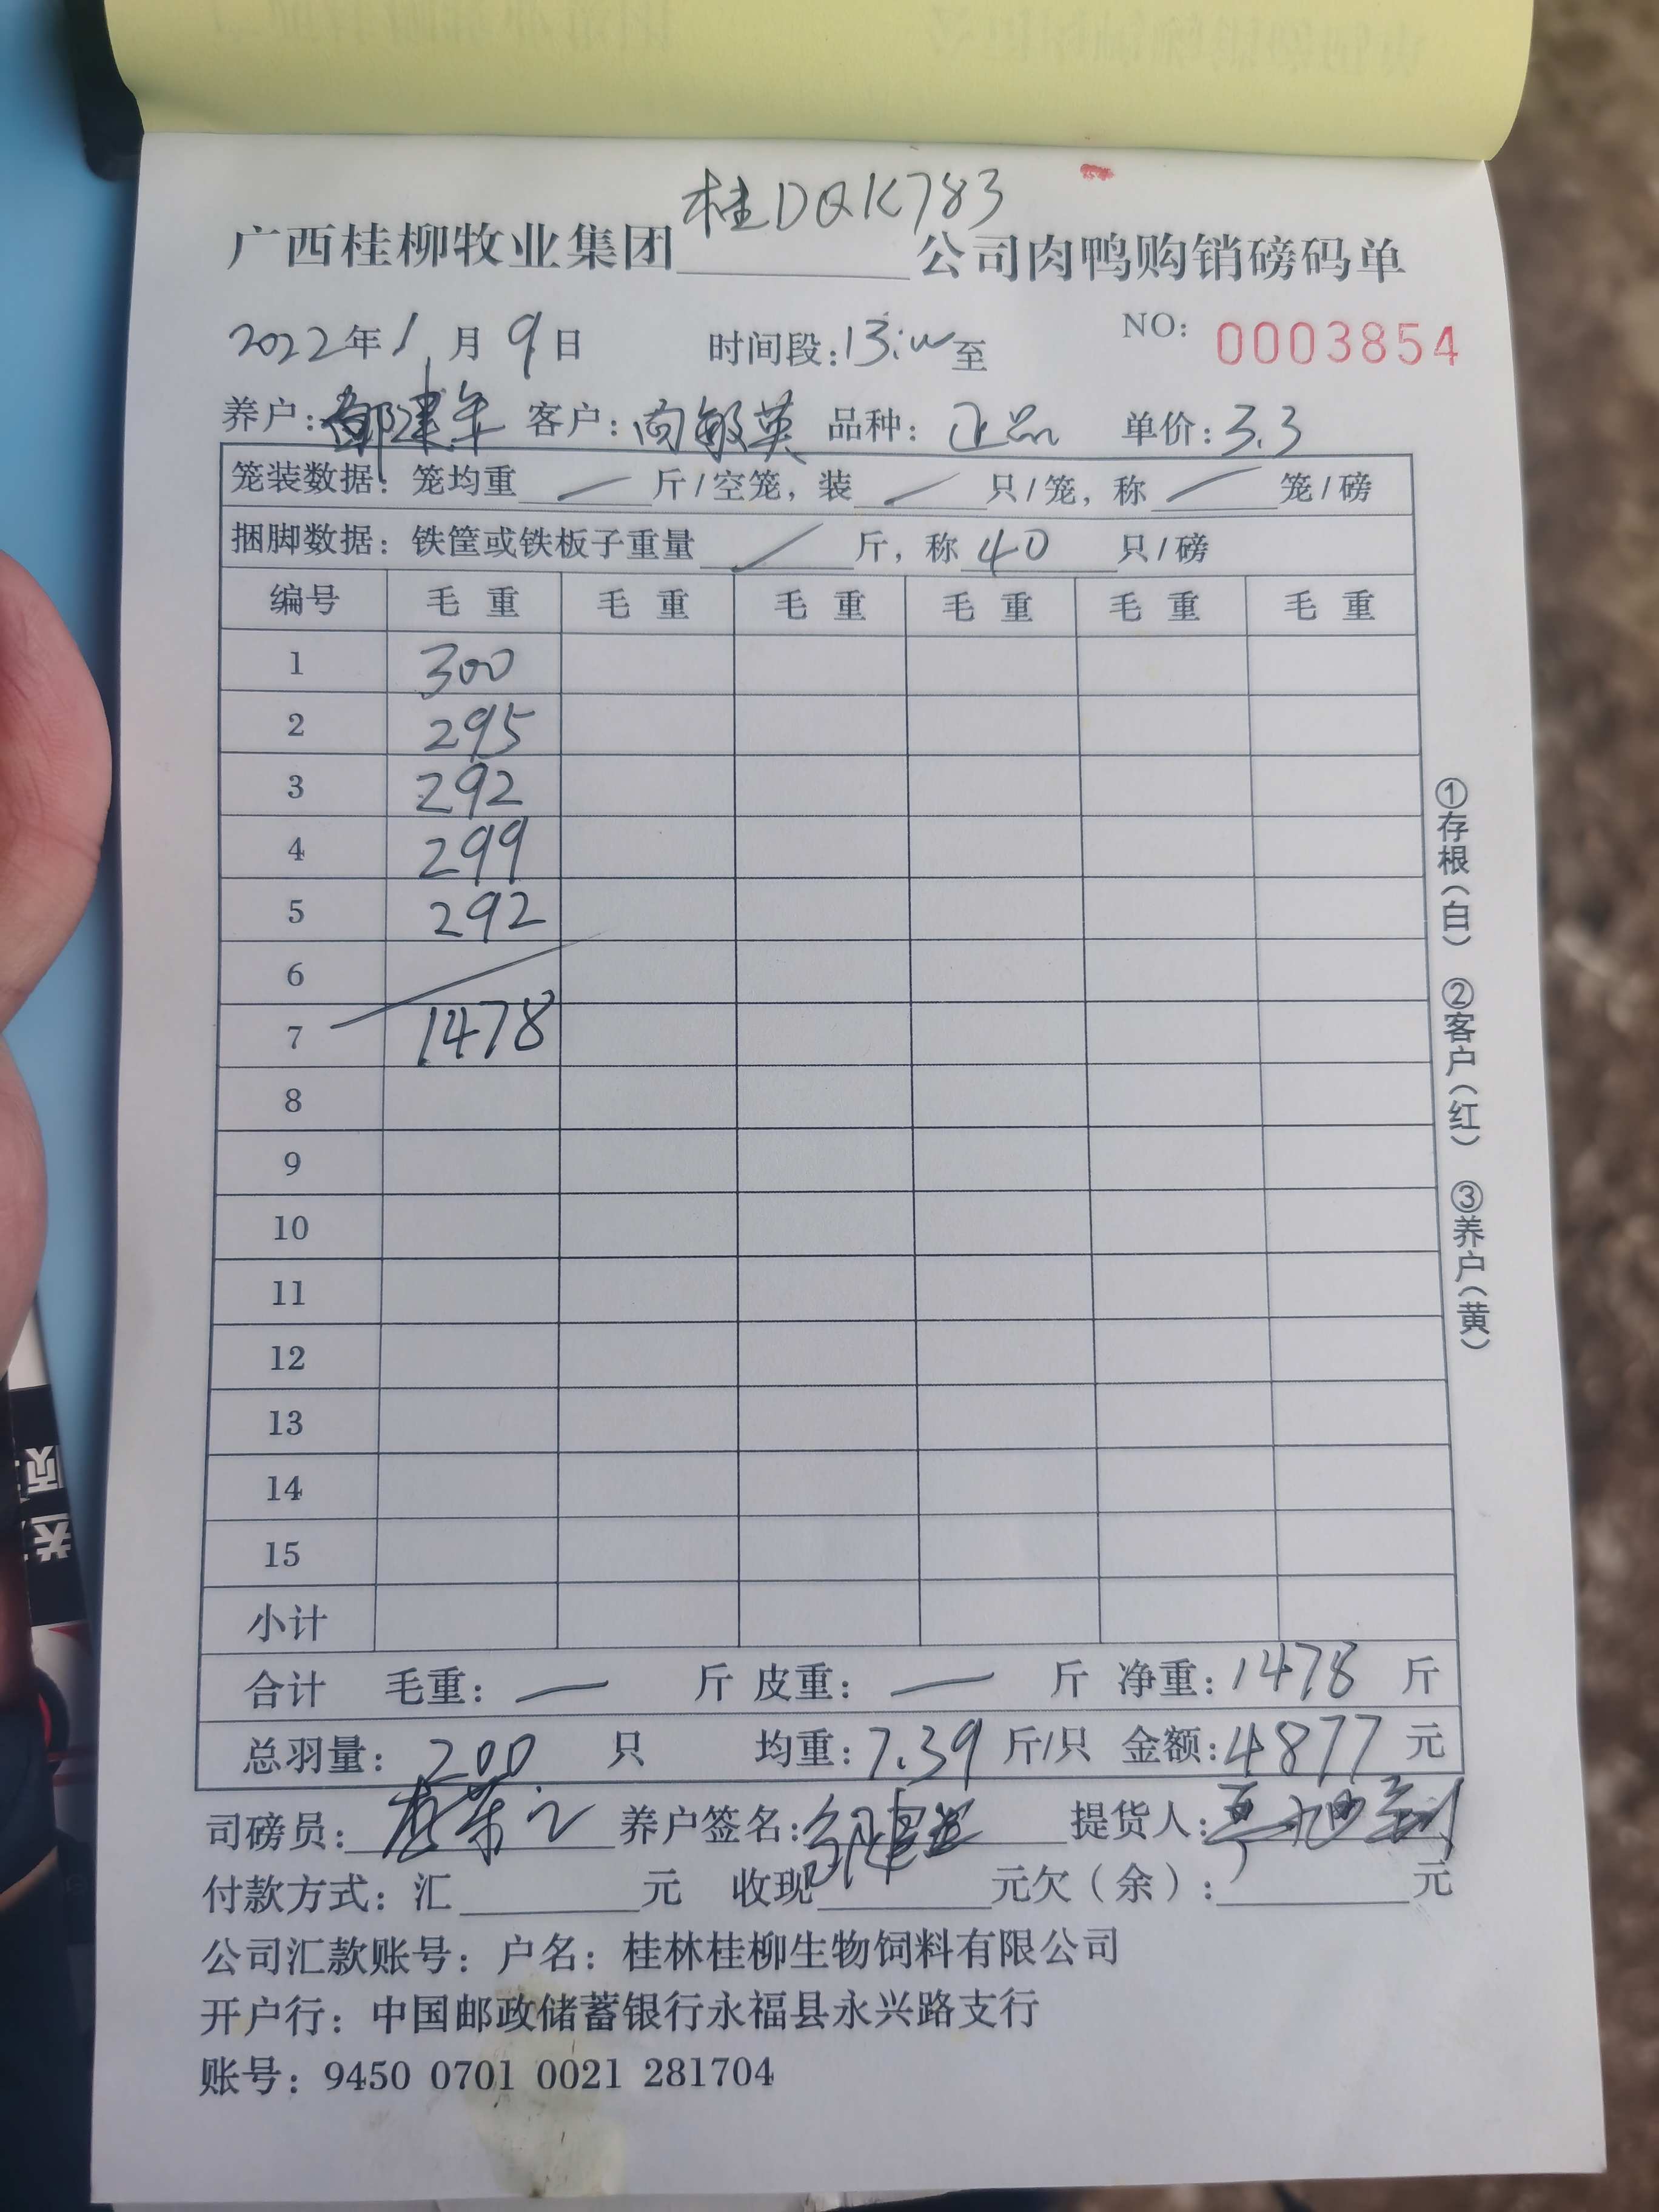 桂DQK783
广西桂柳牧业集团 公司肉鸭购销磅码单
2022年1月9日 时间段:13:00至 NO: 0003854
养户: 客户:尚敏英 品种: 正品 单价:3.3
笼装数据: 笼均重 / 斤/空笼, 装 / 只/笼, 称 / 笼/磅
捆脚数据: 铁筐或铁板子重量 / 斤, 称 40 只/磅
编号 毛重 毛重 毛重 毛重 毛重 毛重
1 300
2 295
3 292
4 299
5 292
6
7 1478
8
9
10
11
12
13
14
15
小计
合计 毛重: — 斤 皮重: — 斤 净重:1478 斤
总羽量: 200 只 均重:7.39 斤/只 金额:4877 元
司磅员: 养户签名: 提货人:
付款方式: 汇 元 收现 元欠(余): 元
公司汇款账号: 户名: 桂林桂柳生物饲料有限公司
开户行: 中国邮政储蓄银行永福县永兴路支行
账号: 9450 0701 0021 281704
①存根(白) ②客户(红) ③养户(黄)